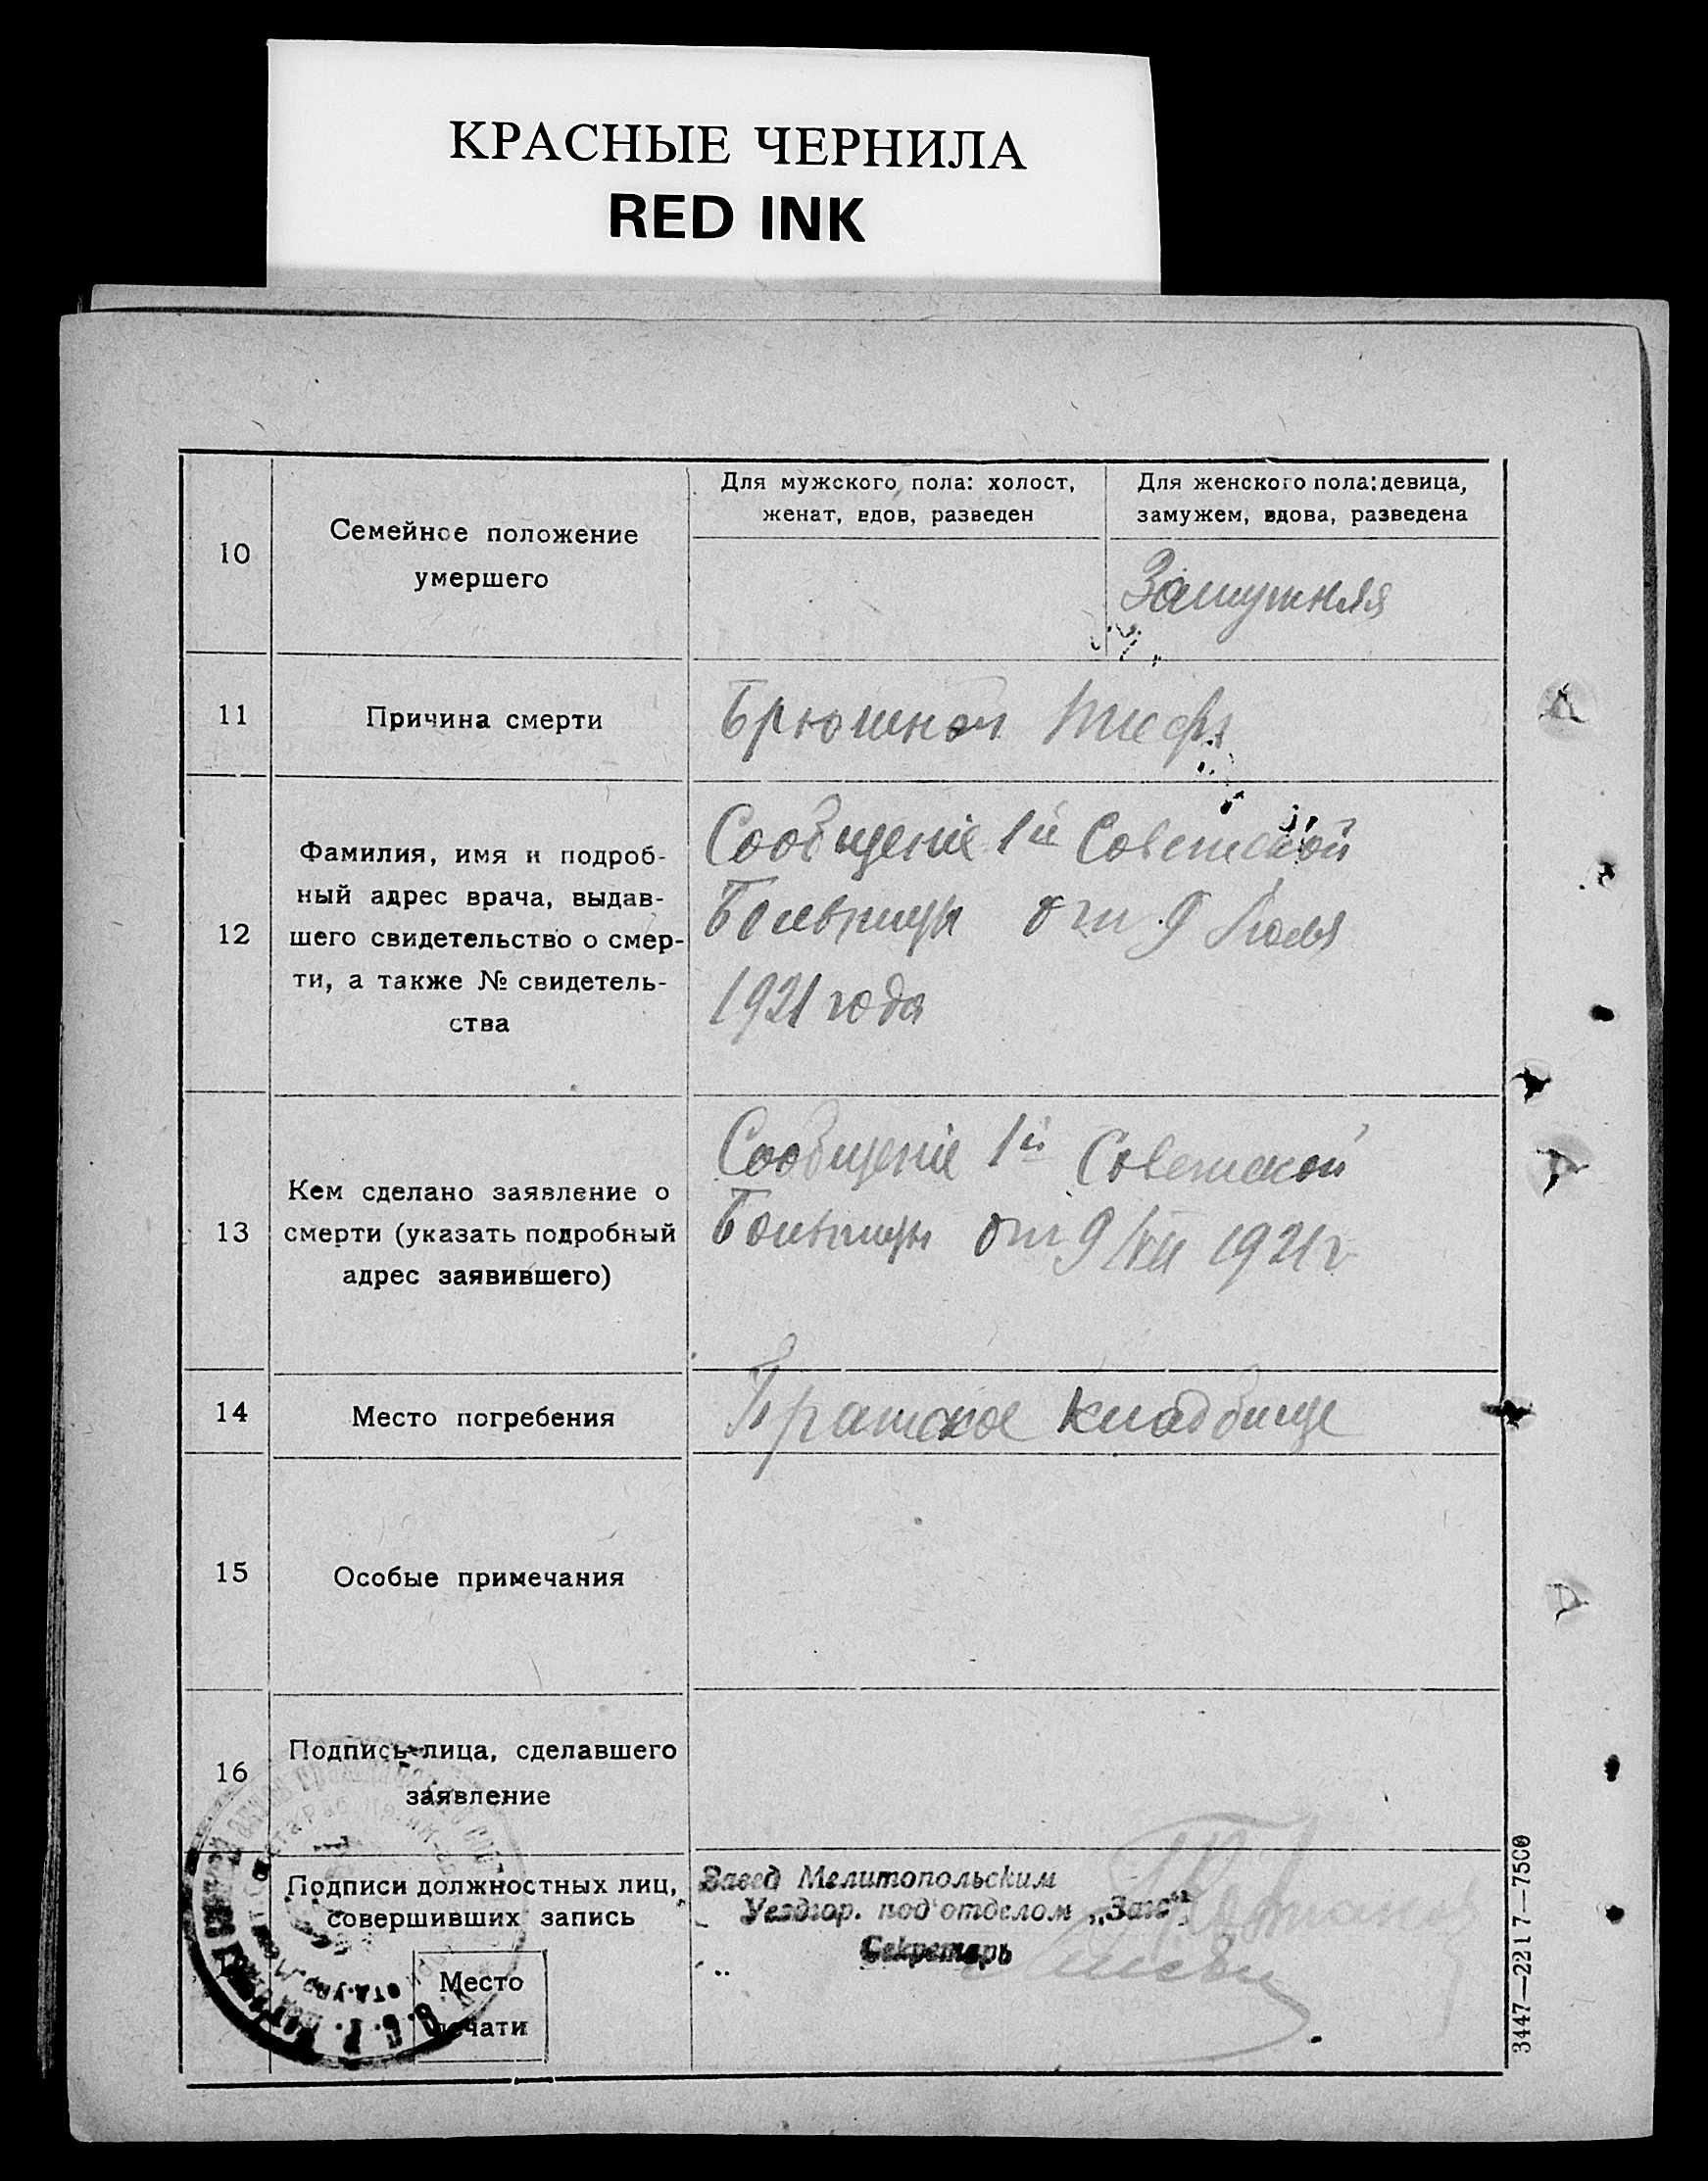 КРАСНЫЕ ЧЕРНИЛА
RED INK
10
Семейное положение
умершего
Для мужского пола: холост,
женат, вдов, разведен
Для женского пола: девица,
замужем, вдова, разведена
Замужняя
11
Причина смерти
Брюшной тиф
12
Фамилия, имя и подроб-
ный адрес врача, выдав-
шего свидетельство о смер-
ти, а также № свидетель-
ства
Сообщеніе 1й Советской
Больницы от 9 Июля
1921 года
13
Кем сделано заявление о
смерти (указать подробный
адрес заявившего)
Сообщеніе 1й Советской
Больницы от 9/VII 1921 г
14
Место погребения
Братское кладбище
15
Особые примечания
16
Подпись лица, сделавшего
заявление
Подписи должностных лиц,
совершивших запись
Место
печати
Завед Мелитопольским
Уездгор. под'отделом „Загс"
Секретарь
3447—2217—7500